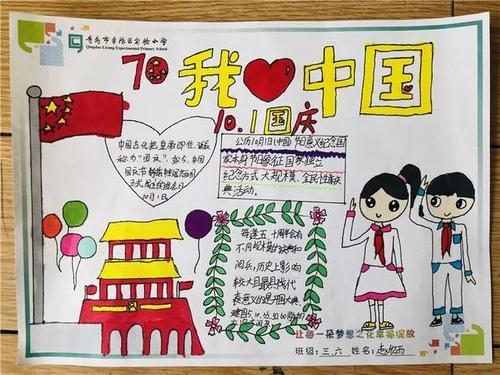 青岛市李沧区实验小学
Qingdao Licang Experimental Primary School
70 我 中国
10.1国庆
中国古代把皇帝即位、诞辰
称为“国庆”。如今,中国
国庆节
正式成立的纪念日
10月1日
公历10月1日(中国)节日意义纪念国
家本身 节日象征国家独立
纪念方式 大规模、全民性庆
典活动。
每逢五、十周年会有
不同规模的庆典和
阅兵,历史上影响
较大且最具代
表意义的是开国大典
建国5、10、35、50
让每一朵梦想之花幸福绽放
班级:三、六 姓名: